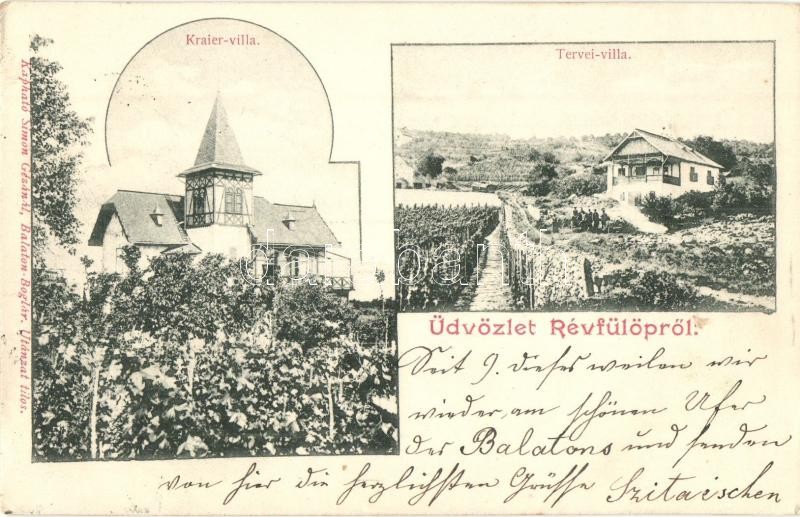 Kraier-villa.
Tervei-villa.
Kapható Simon Gézánál, Balaton-Boglár. Utánzat tilos.
darabanth
Üdvözlet Révfülöpről:
Seit 9. dieses weilen wir
wieder am schönen Ufer
des Balatons und senden
von hier die herzlichsten Grüsse